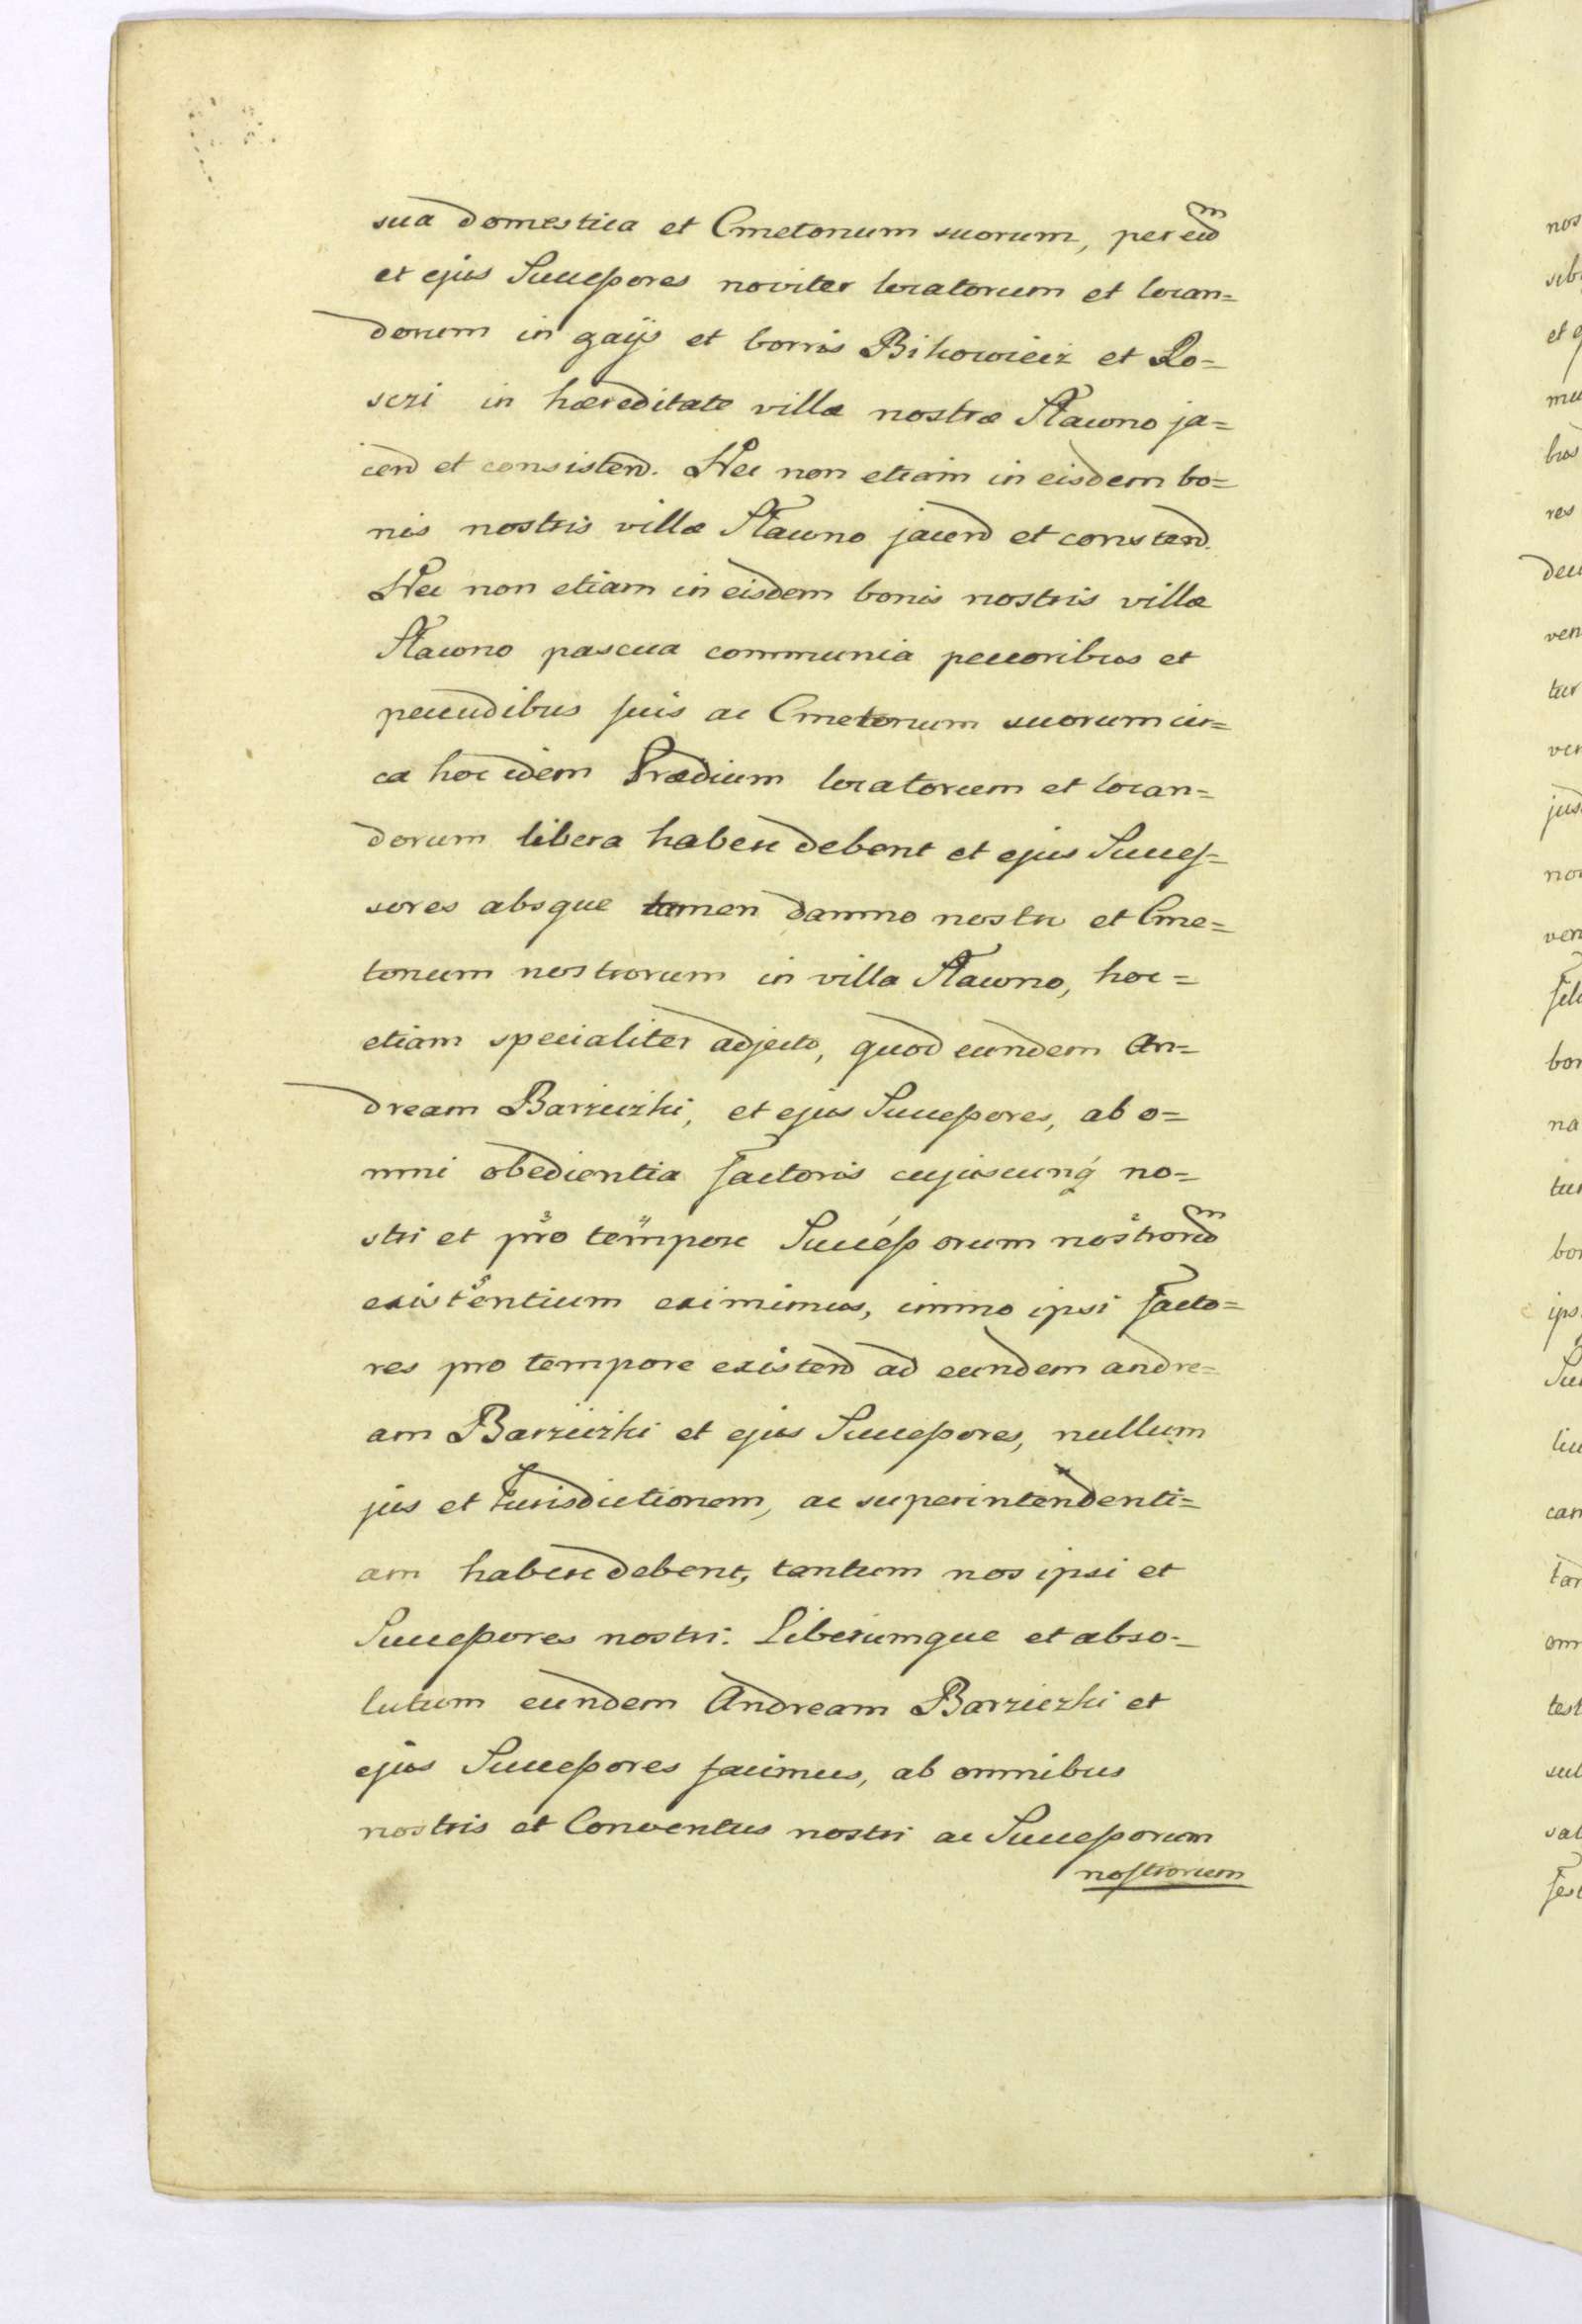 sua domestica et Cmetonum suorum, per eud̃m
et ejus Successores noviter locatorum et locan=
dorum in gaÿs et borris Bikowiecz et Ro=
sczi in hæreditate villæ nostræ Stawno ja=
cend et consistend. Nec non etiam in eisdem bo=
nis nostris villæ Stawno jacend et constend.
Nec non etiam in eisdem bonis nostris villæ
Stawno pascua communia peccoribus et
pecudibus suis ac Cmetonum suorum cir=
ca hoc idem Prædium locatorum et locan=
dorum libera habere debent et ejus Succes=
sores absque tamen damno nostri et Cme=
tonum nostrorum in villa Stawno, hoc=
etiam specialiter adjecto, quod eundem An=
dream Barzuczki, et ejus Successores, ab o=
mni obedientia factoris cujuscunq́ no=
stri et pro tempore Successorum nostrorum
existentium eximimus, immo ipsi facto=
res pro tempore existend ad eundem andre=
am Barzuczki et ejus Successores, nullum
jus et Jurisdictionem, ac superintendenti=
am habere debent, tantum nos ipsi et
Successores nostri. Liberumque et abso=
lutum eundem Andream Barzuczki et
ejus Successores facimus, ab omnibus
nostris et Conventus nostri ac Successorum
nostrorum